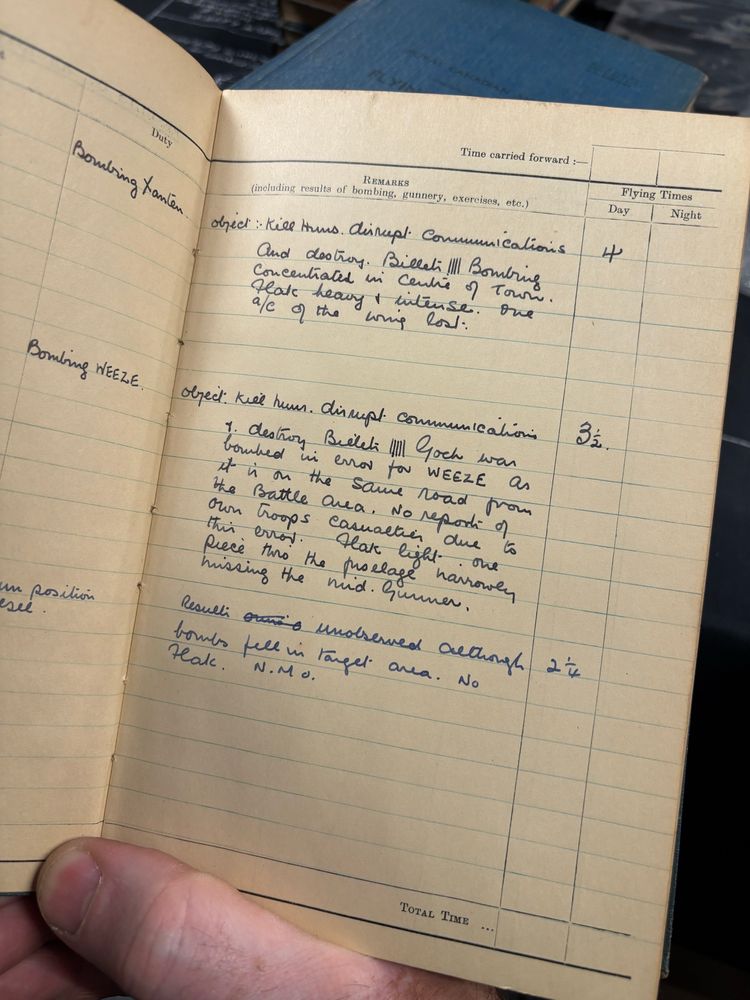 ROYAL CANADIAN
FLYING
Duty
Time carried forward :—
REMARKS
(including results of bombing, gunnery, exercises, etc.)
Flying Times
Day
Night
Bombing Xanten
object :- Kill Huns. disrupt communications
And destroy. Billets |||| Bombing
concentrated in centre of Town.
Flak heavy & intense. one
a/c of the wing lost.
4
Bombing WEEZE.
object. Kill huns. disrupt communications
& destroy Billets ||||| Goch was
bombed in error for WEEZE as
it is on the same road from
the Battle area. No reports of
own troops casualties due to
this error. Flak light. one
piece thro the fuselage narrowly
missing the mid. Gunner.
3½.
position
Results unobserved although
bombs fell in target area. No
Flak. N.M.O.
2¼
TOTAL TIME ...